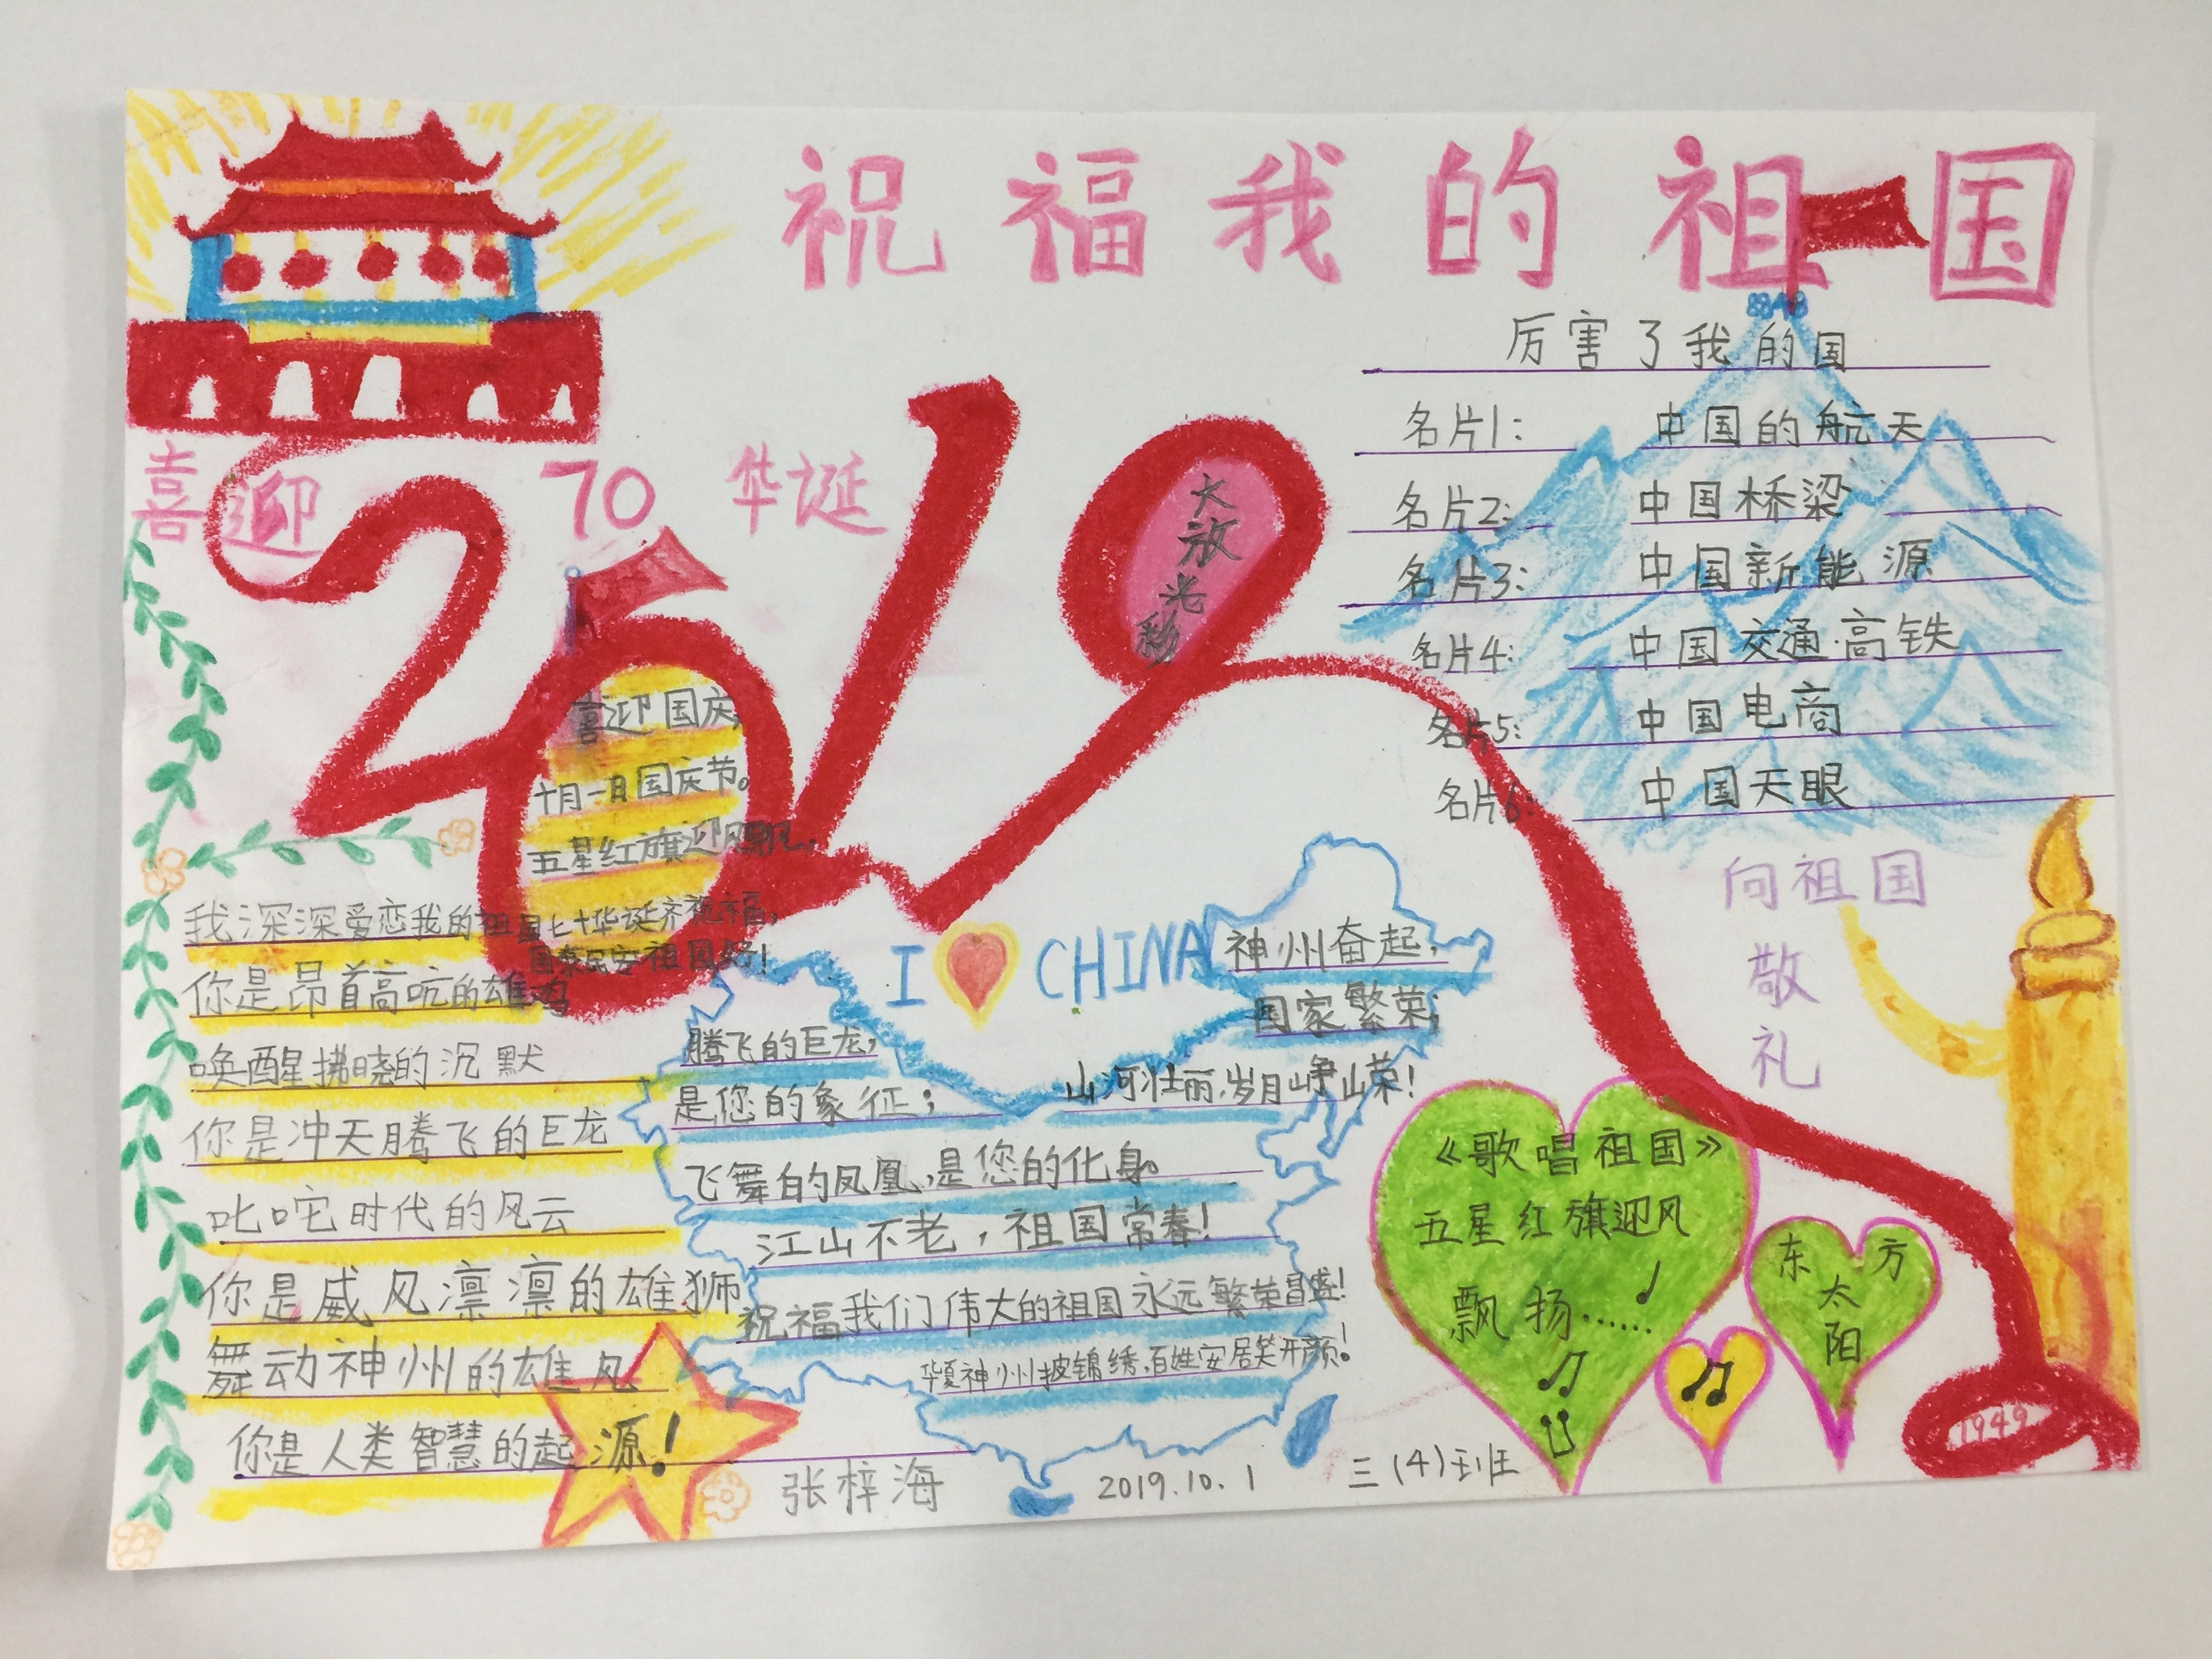 祝福我的祖国
8848
厉害了我的国
名片1: 中国的航天
名片2: 中国桥梁
名片3: 中国新能源
名片4: 中国交通·高铁
名片5: 中国电商
名片6: 中国天眼
喜迎 70 华诞
2019
大放光彩
喜迎国庆,
十月一日国庆节。
五星红旗迎风飘飘,
祖国七十华诞齐祝福,
国泰民安祖国好!
我深深爱恋我的祖国
你是昂首高吭的雄鸡
唤醒拂晓的沉默
你是冲天腾飞的巨龙
叱咤时代的风云
你是威风凛凛的雄狮
舞动神州的雄风
你是人类智慧的起源!
I CHINA
神州奋起,
国家繁荣;
山河壮丽,岁月峥嵘!
腾飞的巨龙,
是您的象征;
飞舞的凤凰,是您的化身。
江山不老,祖国常春!
祝福我们伟大的祖国永远繁荣昌盛!
华夏神州披锦绣,百姓安居笑开颜!
向祖国
敬
礼
《歌唱祖国》
五星红旗迎风
飘扬……
东方
太
阳
1949
张梓海
2019.10.1
三(4)班